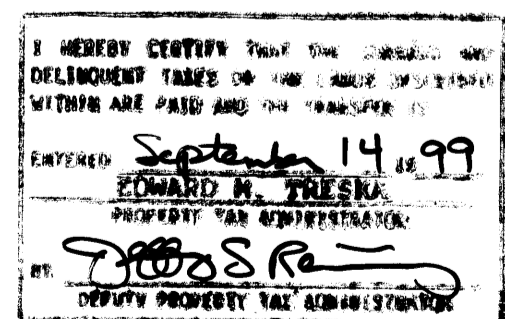 I HEREBY CERTIFY THAT THE CURRENT AND
DELINQUENT TAXES ON THE LANDS DESCRIBED
WITHIN ARE PAID AND THE TRANSFER IS
ENTERED September 14 19 99
EDWARD M. TRESKA
PROPERTY TAX ADMINISTRATOR
BY S
DEPUTY PROPERTY TAX ADMINISTRATOR